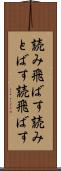 読み飛ばす読み
とばす読飛ばす